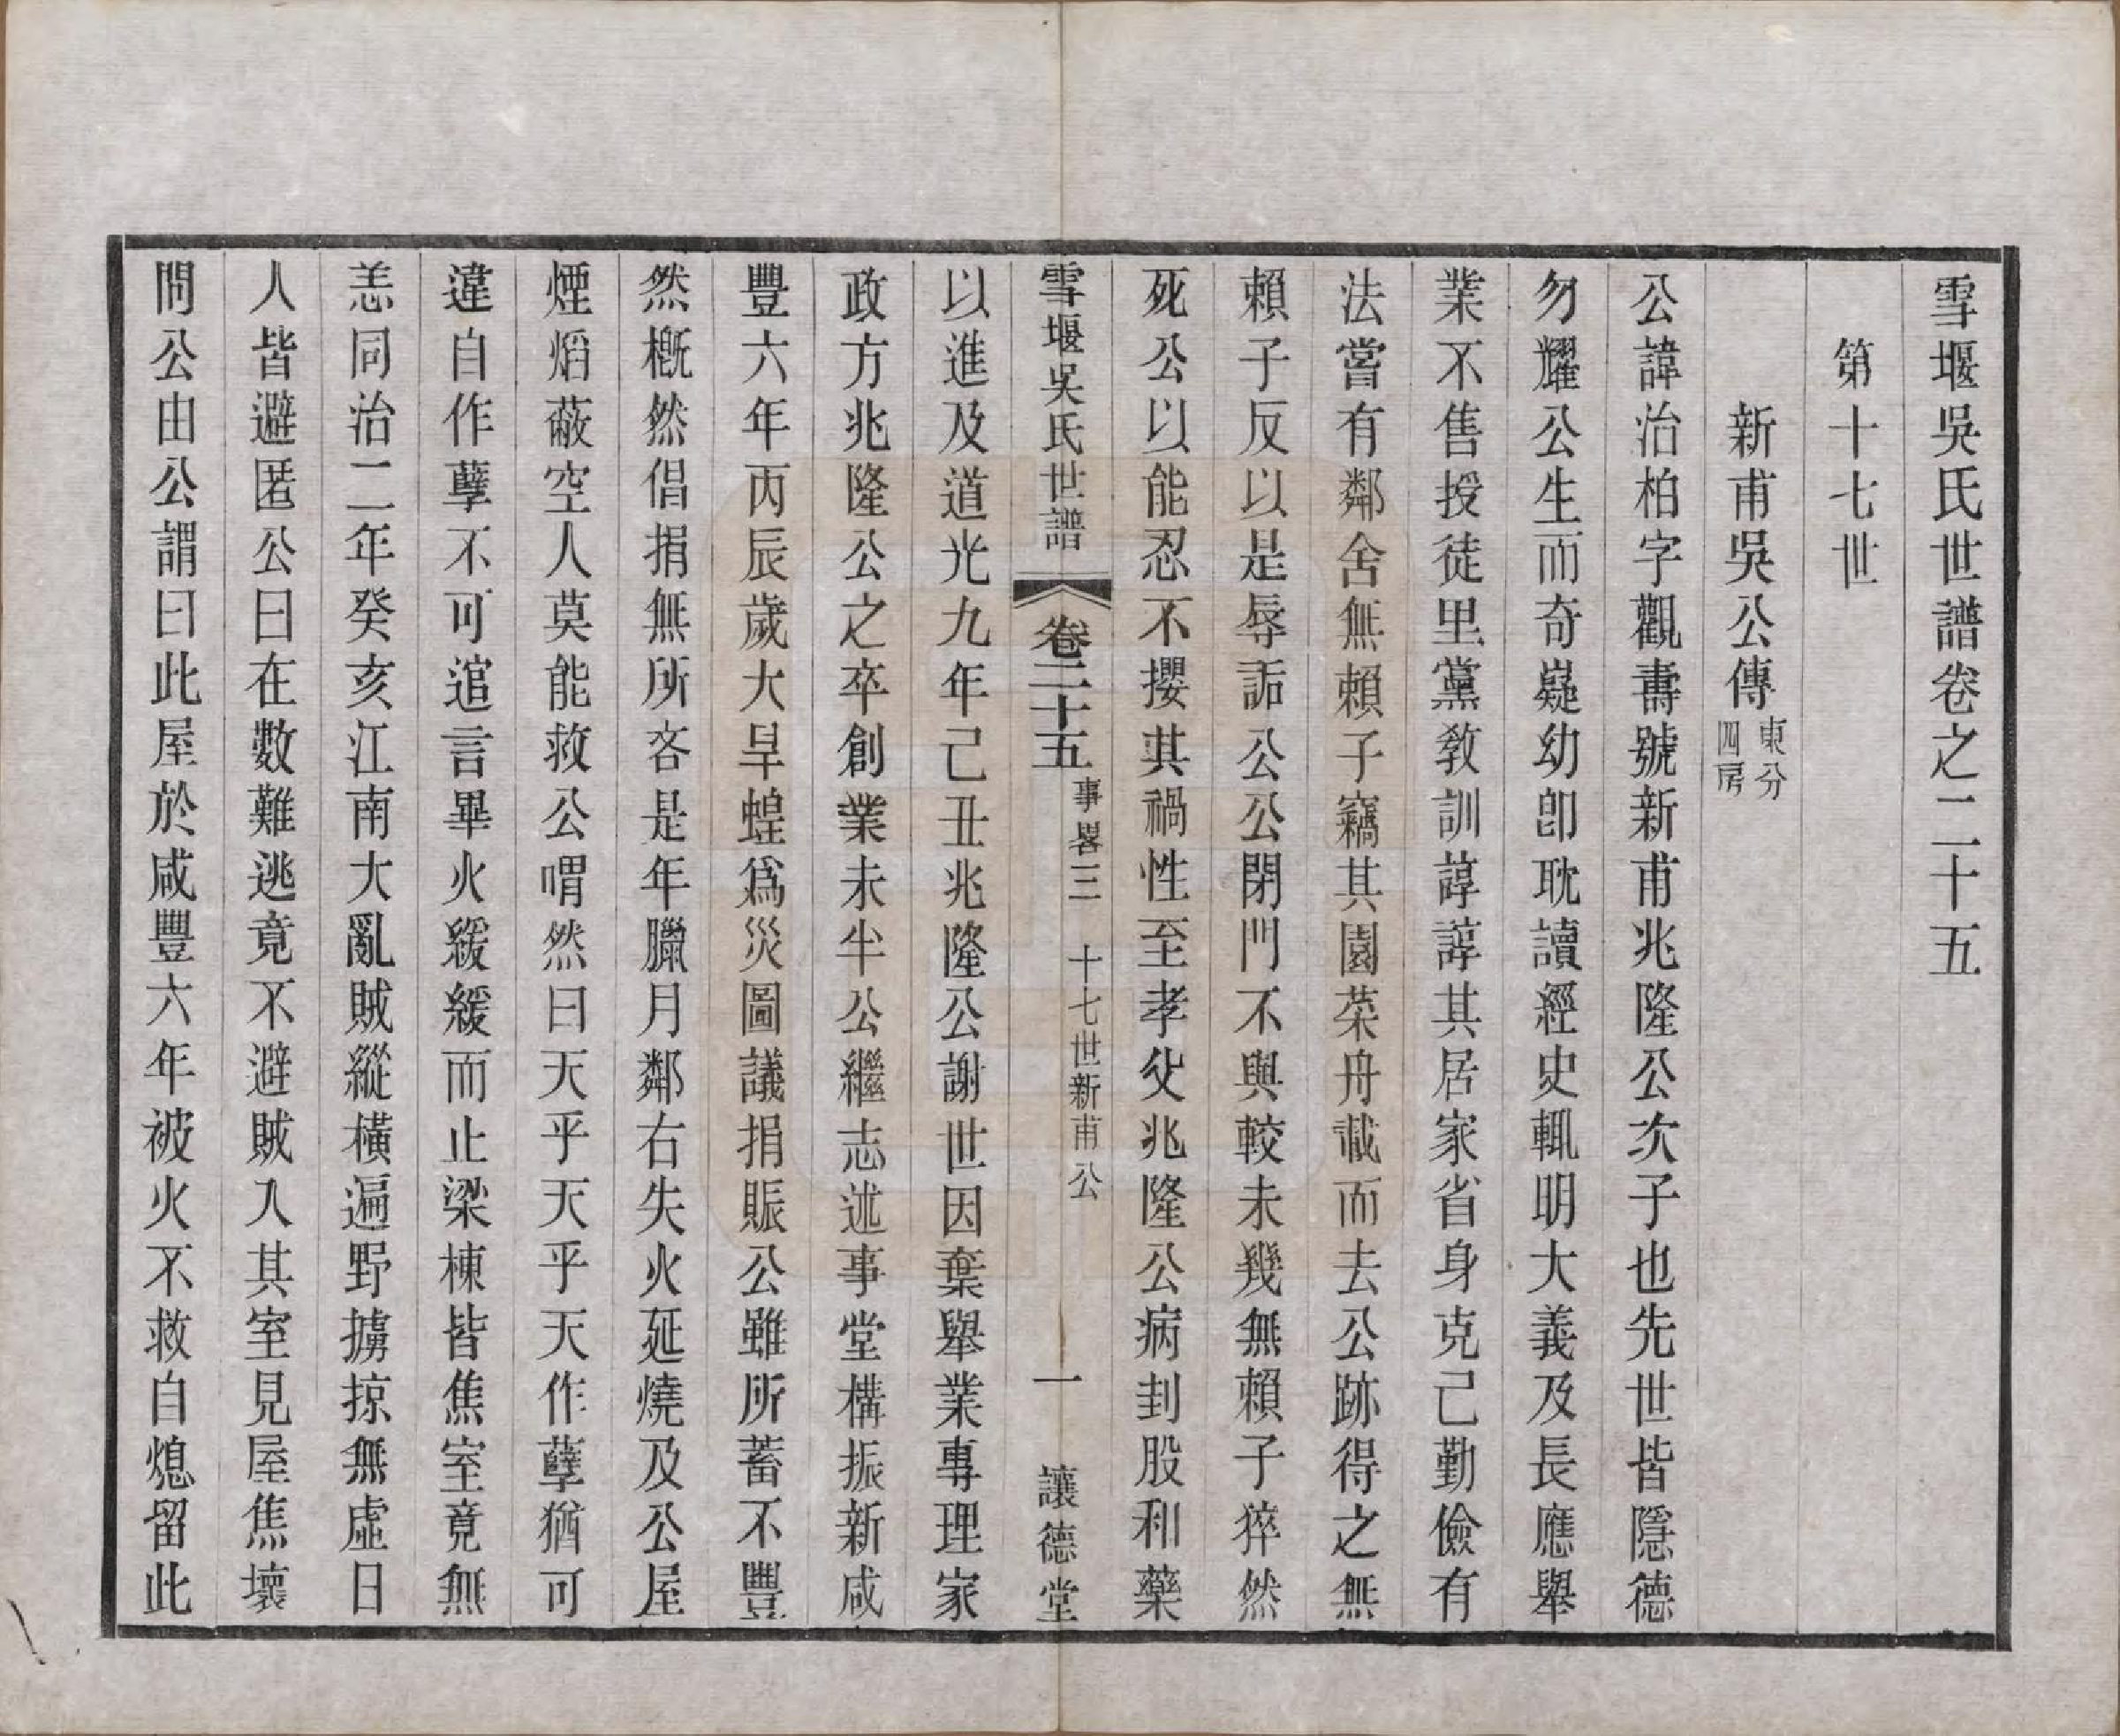 雪堰吳氏世譜卷之二十五
第十七世
新甫吳公傳東分四房
公諱治柏字觀壽號新甫兆隆公次子也先世皆隱德
勿耀公生而奇嶷幼卽耽讀經史輒明大義及長應舉
業不售授徒里黨敎訓諄諄其居家省身克己勤儉有
法嘗有鄰舍無賴子竊其園菜舟載而去公跡得之無
賴子反以是辱詬公公閉門不與較未幾無賴子猝然
死公以能忍不攖其禍性至孝父兆隆公病刲股和藥
雪堰吳氏世譜 卷二十五 事畧三 十七世新甫公 一 讓德堂
以進及道光九年己丑兆隆公謝世因棄舉業專理家
政方兆隆公之卒創業未半公繼志述事堂構振新咸
豐六年丙辰歲大旱蝗爲災圖議捐賑公雖所蓄不豐
然槪然倡捐無所吝是年臘月鄰右失火延燒及公屋
煙焰蔽空人莫能救公喟然曰天乎天乎天作孽猶可
違自作孽不可逭言畢火緩緩而止梁棟皆焦室竟無
恙同治二年癸亥江南大亂賊縱橫遍野擄掠無虛日
人皆避匿公曰在數難逃竟不避賊入其室見屋焦壞
問公由公謂曰此屋於咸豐六年被火不救自熄留此